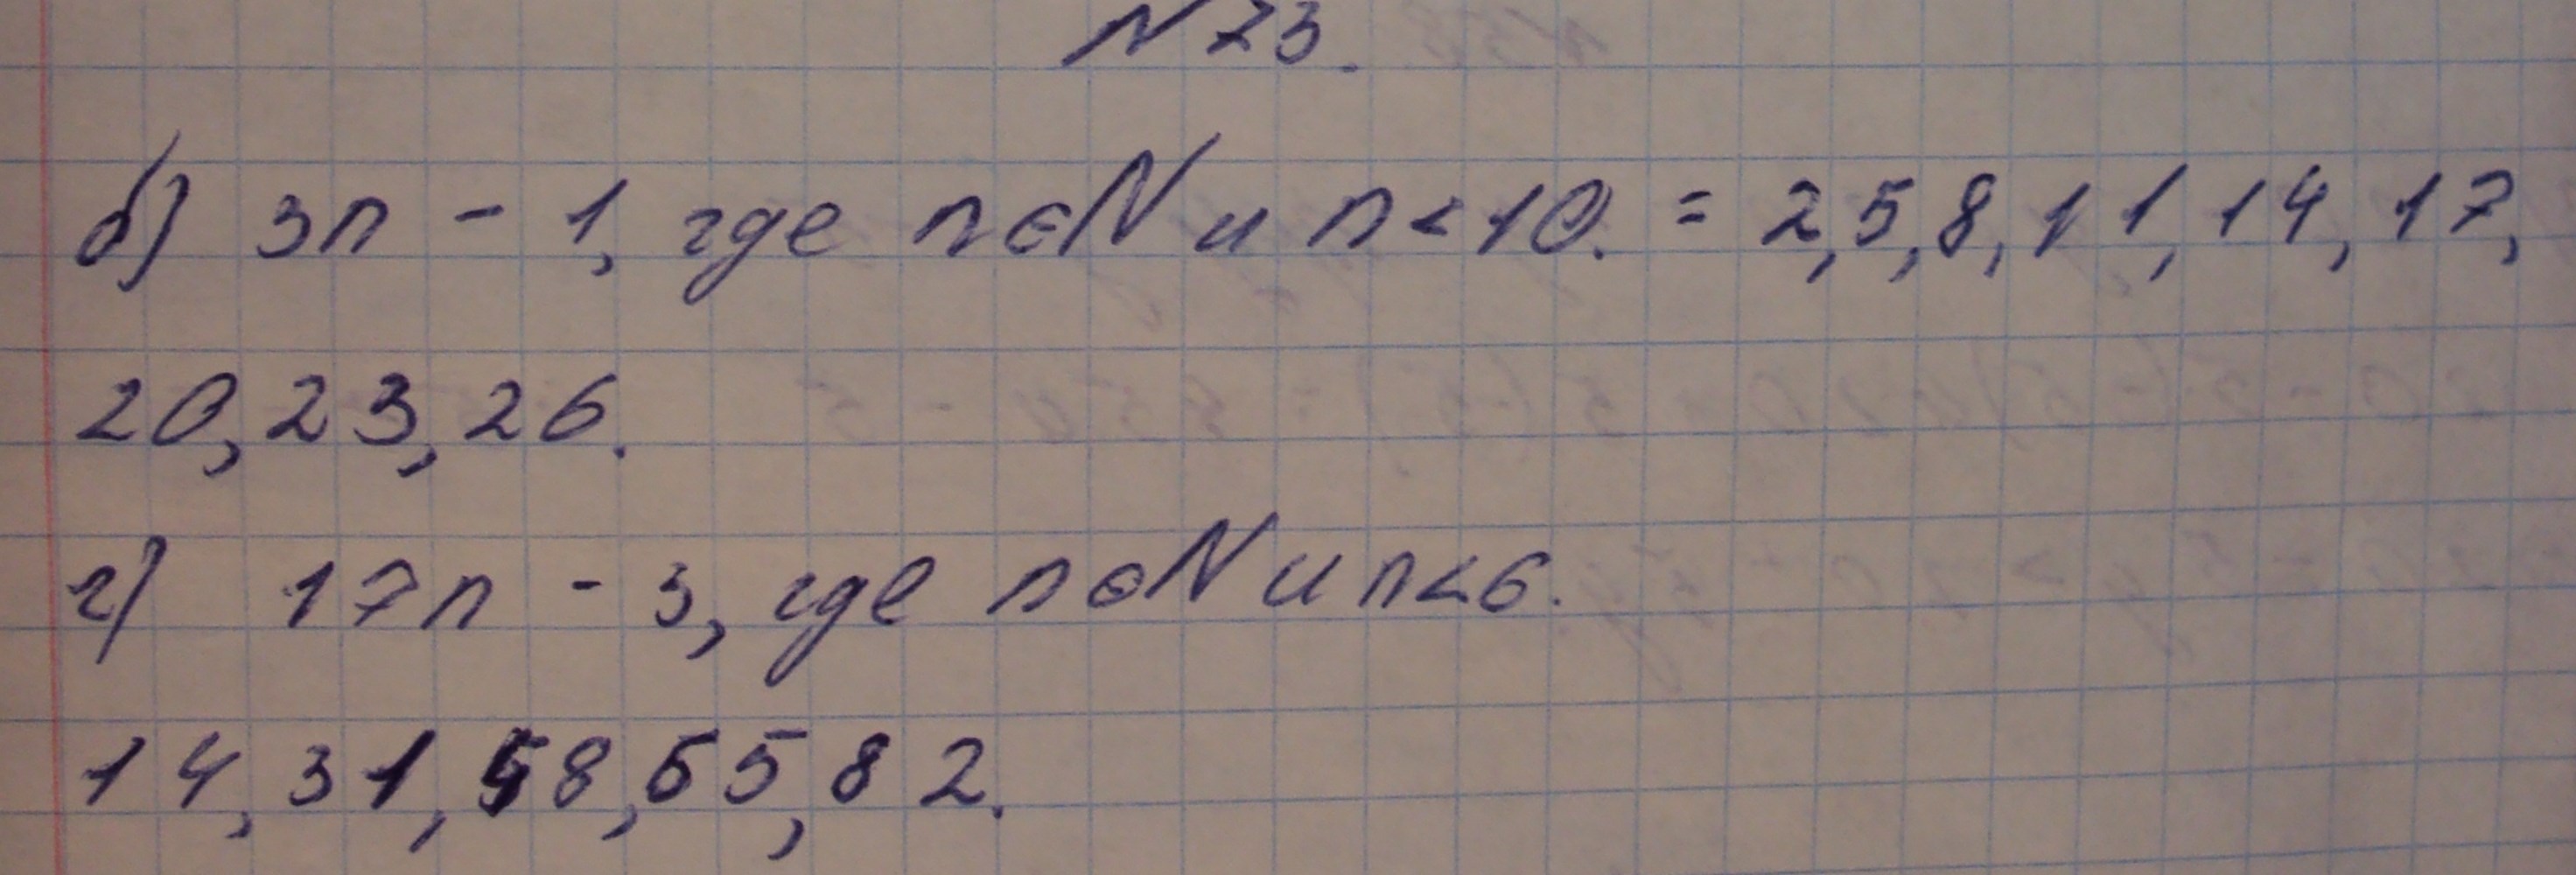 N 73.
б) 3n - 1, где n ∈ N и n < 10. = 2, 5, 8, 11, 14, 17,
20, 23, 26.
г) 17n - 3, где n ∈ N и n < 6.
14, 31, 48, 65, 82.